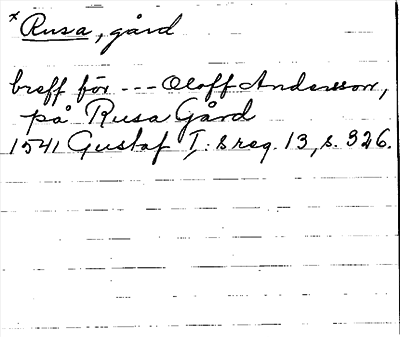 * Rusa, gård
breff för --- Oloff Andersson,
på Rusa Gård
1541 Gustaf I: s reg. 13, s. 326.